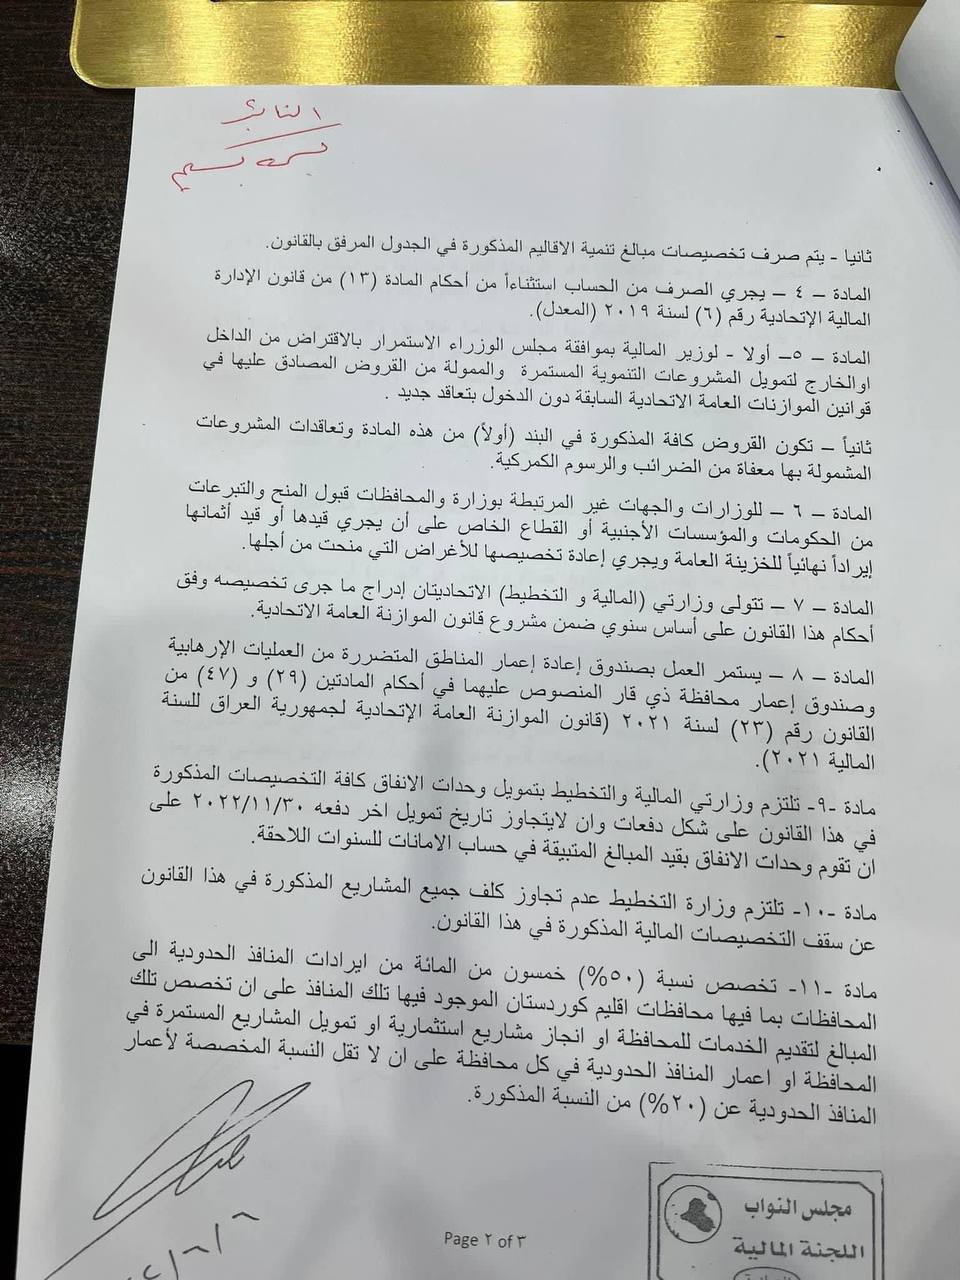 النائب
ثانيا - يتم صرف تخصيصات مبالغ تنمية الاقاليم المذكورة في الجدول المرفق بالقانون.
المادة – ٤ – يجري الصرف من الحساب استثناءاً من أحكام المادة (١٣) من قانون الإدارة
المالية الإتحادية رقم (٦) لسنة ٢٠١٩ (المعدل).
المادة – ٥– أولا - لوزير المالية بموافقة مجلس الوزراء الاستمرار بالاقتراض من الداخل
اوالخارج لتمويل المشروعات التنموية المستمرة والممولة من القروض المصادق عليها في
قوانين الموازنات العامة الاتحادية السابقة دون الدخول بتعاقد جديد .
ثانياً – تكون القروض كافة المذكورة في البند (أولاً) من هذه المادة وتعاقدات المشروعات
المشمولة بها معفاة من الضرائب والرسوم الكمركية.
المادة – ٦ – للوزارات والجهات غير المرتبطة بوزارة والمحافظات قبول المنح والتبرعات
من الحكومات والمؤسسات الأجنبية أو القطاع الخاص على أن يجري قيدها أو قيد أثمانها
إيراداً نهائياً للخزينة العامة ويجري إعادة تخصيصها للأغراض التي منحت من أجلها.
المادة – ٧ – تتولى وزارتي (المالية و التخطيط) الاتحاديتان إدراج ما جرى تخصيصه وفق
أحكام هذا القانون على أساس سنوي ضمن مشروع قانون الموازنة العامة الاتحادية.
المادة – ٨ – يستمر العمل بصندوق إعادة إعمار المناطق المتضررة من العمليات الإرهابية
وصندوق إعمار محافظة ذي قار المنصوص عليهما في أحكام المادتين (٢٩) و (٤٧) من
القانون رقم (٢٣) لسنة ٢٠٢١ (قانون الموازنة العامة الإتحادية لجمهورية العراق للسنة
المالية ٢٠٢١).
مادة -٩- تلتزم وزارتي المالية والتخطيط بتمويل وحدات الانفاق كافة التخصيصات المذكورة
في هذا القانون على شكل دفعات وان لايتجاوز تاريخ تمويل اخر دفعه ٢٠٢٢/١١/٣٠ على
ان تقوم وحدات الانفاق بقيد المبالغ المتبيقة في حساب الامانات للسنوات اللاحقة.
مادة -١٠- تلتزم وزارة التخطيط عدم تجاوز كلف جميع المشاريع المذكورة في هذا القانون
عن سقف التخصيصات المالية المذكورة في هذا القانون.
مادة -١١- تخصص نسبة (٥٠%) خمسون من المائة من ايرادات المنافذ الحدودية الى
المحافظات بما فيها محافظات اقليم كوردستان الموجود فيها تلك المنافذ على ان تخصص تلك
المبالغ لتقديم الخدمات للمحافظة او انجاز مشاريع استثمارية او تمويل المشاريع المستمرة في
المحافظة او اعمار المنافذ الحدودية في كل محافظة على ان لا تقل النسبة المخصصة لأعمار
المنافذ الحدودية عن (٢٠%) من النسبة المذكورة.
مجلس النواب
اللجنة المالية
Page ٢ of ٣